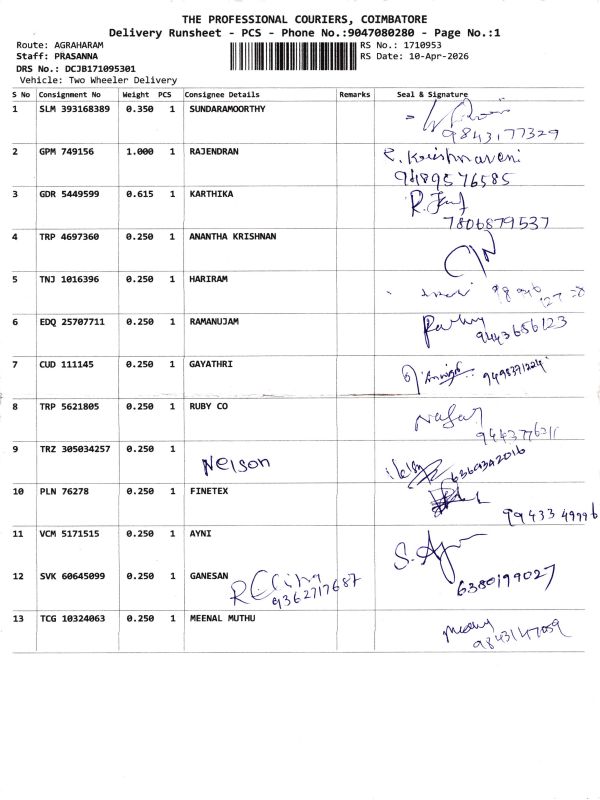 THE PROFESSIONAL COURIERS, COIMBATORE
Delivery Runsheet - PCS - Phone No.:9047080280 - Page No.:1
Route: AGRAHARAM
RS No.: 1710953
Staff: PRASANNA
RS Date: 10-Apr-2026
DRS No.: DCJB171095301
Vehicle: Two Wheeler Delivery
S No Consignment No Weight PCS Consignee Details Remarks Seal & Signature
1 SLM 393168389 0.350 1 SUNDARAMOORTHY
9843177329
2 GPM 749156 1.000 1 RAJENDRAN
9489576585
3 GDR 5449599 0.615 1 KARTHIKA
7806879537
4 TRP 4697360 0.250 1 ANANTHA KRISHNAN
5 TNJ 1016396 0.250 1 HARIRAM
6 EDQ 25707711 0.250 1 RAMANUJAM
9443656123
7 CUD 111145 0.250 1 GAYATHRI
8 TRP 5621805 0.250 1 RUBY CO
9 TRZ 305034257 0.250 1 Nelson
10 PLN 76278 0.250 1 FINETEX
99433 49996
11 VCM 5171515 0.250 1 AYNI
12 SVK 60645099 0.250 1 GANESAN
9362717687
6380199027
13 TCG 10324063 0.250 1 MEENAL MUTHU